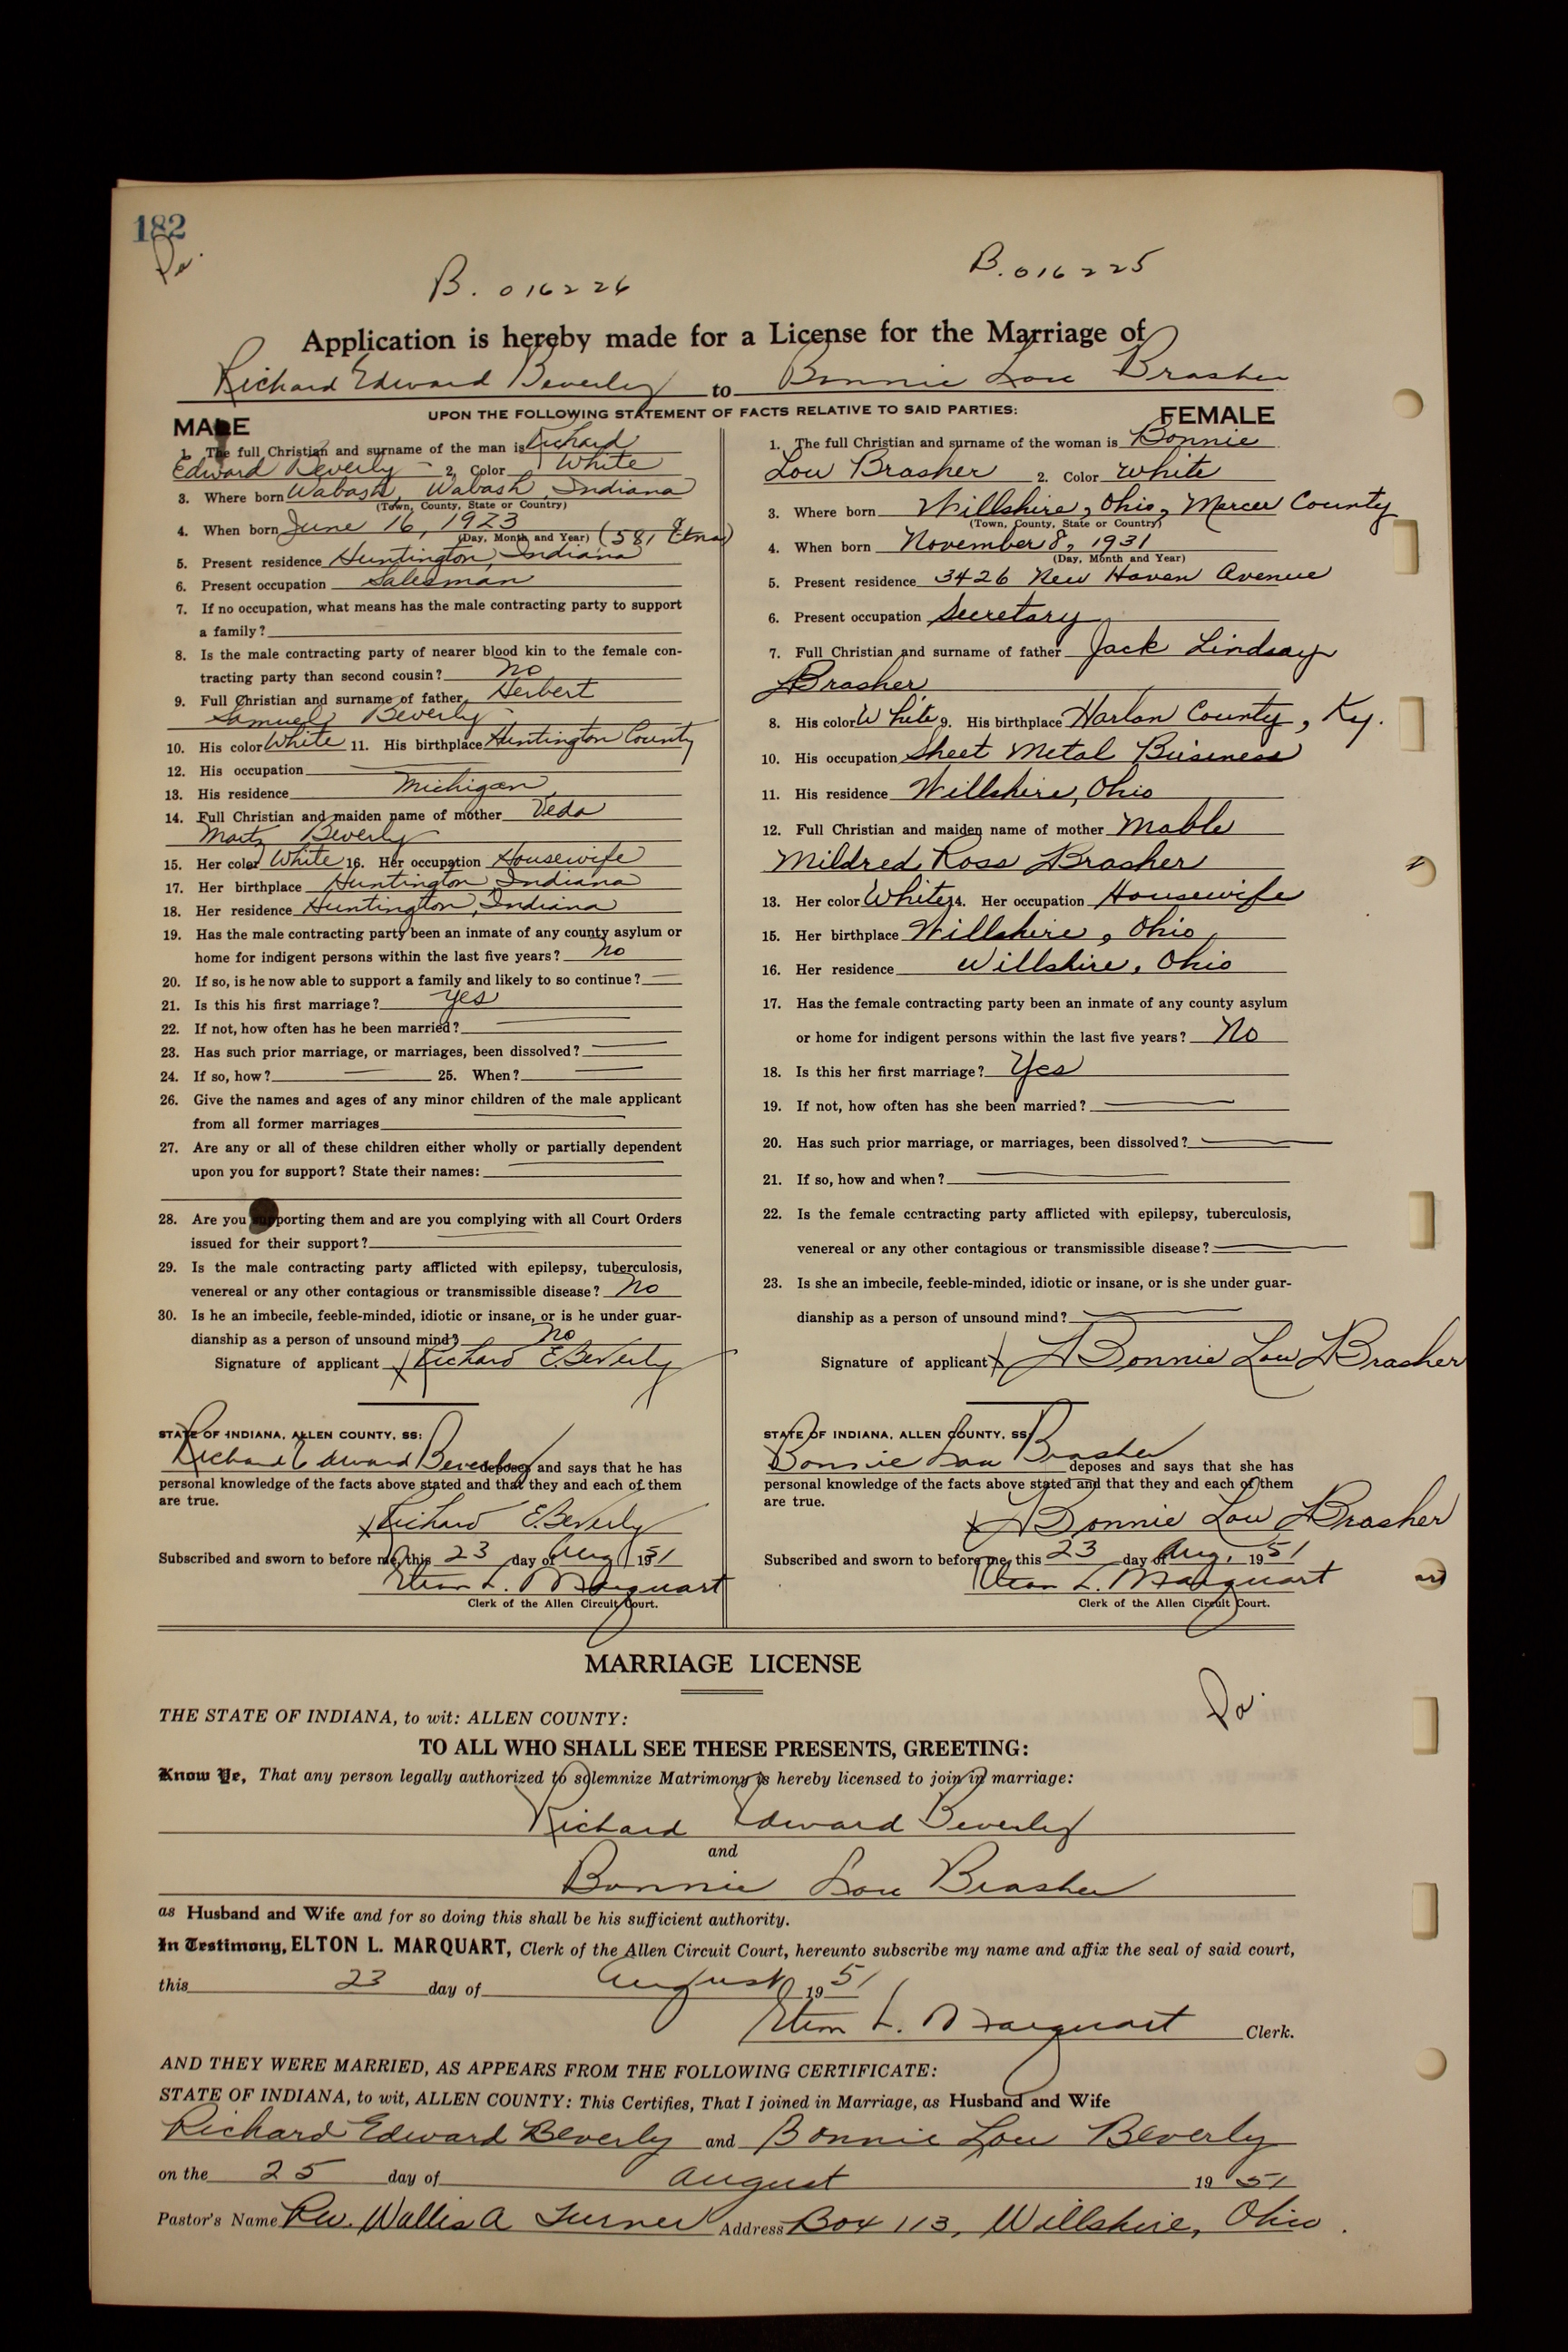 182
Pd.
B. 016226
B. 016225
Application is hereby made for a License for the Marriage of
Richard Edward Beverly to Bonnie Lou Brasher
UPON THE FOLLOWING STATEMENT OF FACTS RELATIVE TO SAID PARTIES:
MALE
1. The full Christian and surname of the man is Richard
Edward Beverly 2. Color White
3. Where born Wabash, Wabash, Indiana
(Town, County, State or Country)
4. When born June 16, 1923
(Day, Month and Year) (581 Etna)
5. Present residence Huntington, Indiana
6. Present occupation Salesman
7. If no occupation, what means has the male contracting party to support
a family?
8. Is the male contracting party of nearer blood kin to the female con-
tracting party than second cousin? no
9. Full Christian and surname of father Herbert
Samuel Beverly
10. His color White 11. His birthplace Huntington County
12. His occupation
13. His residence Michigan
14. Full Christian and maiden name of mother Veda
Martz Beverly
15. Her color White 16. Her occupation Housewife
17. Her birthplace Huntington, Indiana
18. Her residence Huntington, Indiana
19. Has the male contracting party been an inmate of any county asylum or
home for indigent persons within the last five years? no
20. If so, is he now able to support a family and likely to so continue?
21. Is this his first marriage? yes
22. If not, how often has he been married?
23. Has such prior marriage, or marriages, been dissolved?
24. If so, how? 25. When?
26. Give the names and ages of any minor children of the male applicant
from all former marriages
27. Are any or all of these children either wholly or partially dependent
upon you for support? State their names:
28. Are you supporting them and are you complying with all Court Orders
issued for their support?
29. Is the male contracting party afflicted with epilepsy, tuberculosis,
venereal or any other contagious or transmissible disease? no
30. Is he an imbecile, feeble-minded, idiotic or insane, or is he under guar-
dianship as a person of unsound mind? no
Signature of applicant x Richard E. Beverly
STATE OF INDIANA, ALLEN COUNTY, SS:
Richard Edward Beverly deposes and says that he has
personal knowledge of the facts above stated and that they and each of them
are true.
x Richard E. Beverly
Subscribed and sworn to before me, this 23 day of Aug 1951
Elton L. Marquart
Clerk of the Allen Circuit Court.
FEMALE
1. The full Christian and surname of the woman is Bonnie
Lou Brasher 2. Color White
3. Where born Willshire, Ohio, Mercer County
(Town, County, State or Country)
4. When born November 8, 1931
(Day, Month and Year)
5. Present residence 3426 New Haven Avenue
6. Present occupation Secretary
7. Full Christian and surname of father Jack Lindsay
Brasher
8. His color White 9. His birthplace Harlan County, Ky.
10. His occupation Sheet Metal Business
11. His residence Willshire, Ohio
12. Full Christian and maiden name of mother Mable
Mildred Ross Brasher
13. Her color White 14. Her occupation Housewife
15. Her birthplace Willshire, Ohio
16. Her residence Willshire, Ohio
17. Has the female contracting party been an inmate of any county asylum
or home for indigent persons within the last five years? No
18. Is this her first marriage? Yes
19. If not, how often has she been married?
20. Has such prior marriage, or marriages, been dissolved?
21. If so, how and when?
22. Is the female contracting party afflicted with epilepsy, tuberculosis,
venereal or any other contagious or transmissible disease?
23. Is she an imbecile, feeble-minded, idiotic or insane, or is she under guar-
dianship as a person of unsound mind?
Signature of applicant x Bonnie Lou Brasher
STATE OF INDIANA, ALLEN COUNTY, SS:
Bonnie Lou Brasher deposes and says that she has
personal knowledge of the facts above stated and that they and each of them
are true.
x Bonnie Lou Brasher
Subscribed and sworn to before me, this 23 day of Aug. 1951
Elton L. Marquart
Clerk of the Allen Circuit Court.
MARRIAGE LICENSE
Pd.
THE STATE OF INDIANA, to wit: ALLEN COUNTY:
TO ALL WHO SHALL SEE THESE PRESENTS, GREETING:
Know Ye, That any person legally authorized to solemnize Matrimony is hereby licensed to join in marriage:
Richard Edward Beverly
and
Bonnie Lou Brasher
as Husband and Wife and for so doing this shall be his sufficient authority.
In Testimony, ELTON L. MARQUART, Clerk of the Allen Circuit Court, hereunto subscribe my name and affix the seal of said court,
this 23 day of August 1951
Elton L. Marquart Clerk.
AND THEY WERE MARRIED, AS APPEARS FROM THE FOLLOWING CERTIFICATE:
STATE OF INDIANA, to wit, ALLEN COUNTY: This Certifies, That I joined in Marriage, as Husband and Wife
Richard Edward Beverly and Bonnie Lou Beverly
on the 25 day of August 1951
Pastor's Name Rev. Wallis A Turner Address Box 113, Willshire, Ohio.